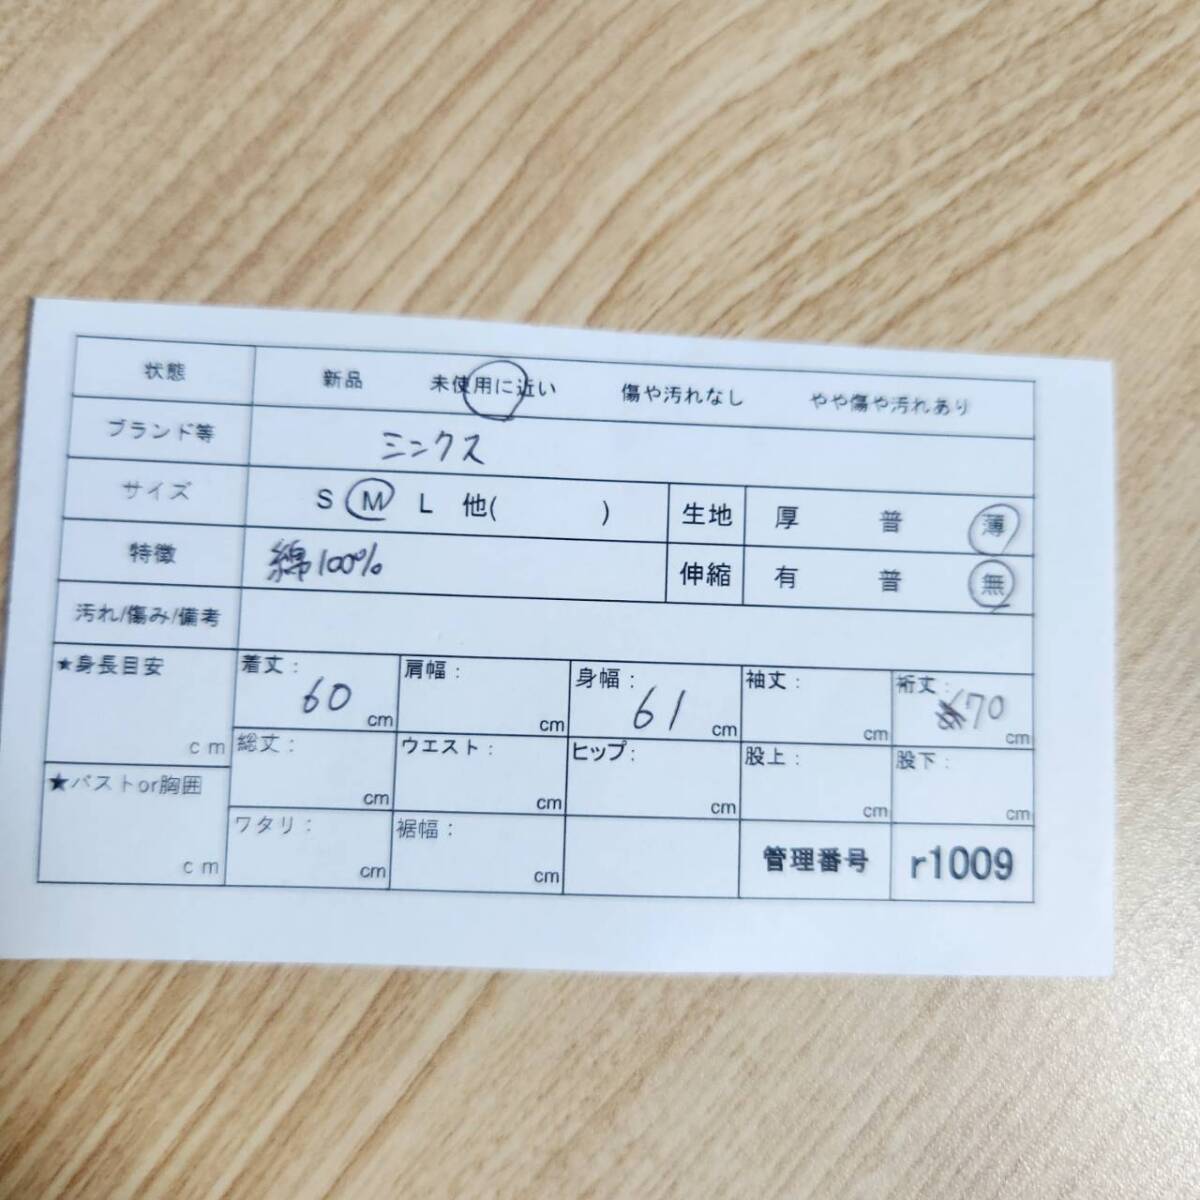 状態 新品 未使用に近い 傷や汚れなし やや傷や汚れあり
ブランド等 ミンクス
サイズ S M L 他( ) 生地 厚 普 薄
特徴 綿100% 伸縮 有 普 無
汚れ/傷み/備考
★身長目安 cm 着丈: 60 cm 肩幅: cm 身幅: 61 cm 袖丈: cm 裄丈: 70 cm
総丈: cm ウエスト: cm ヒップ: cm 股上: cm 股下: cm
★バストor胸囲 cm ワタリ: cm 裾幅: cm 管理番号 r1009